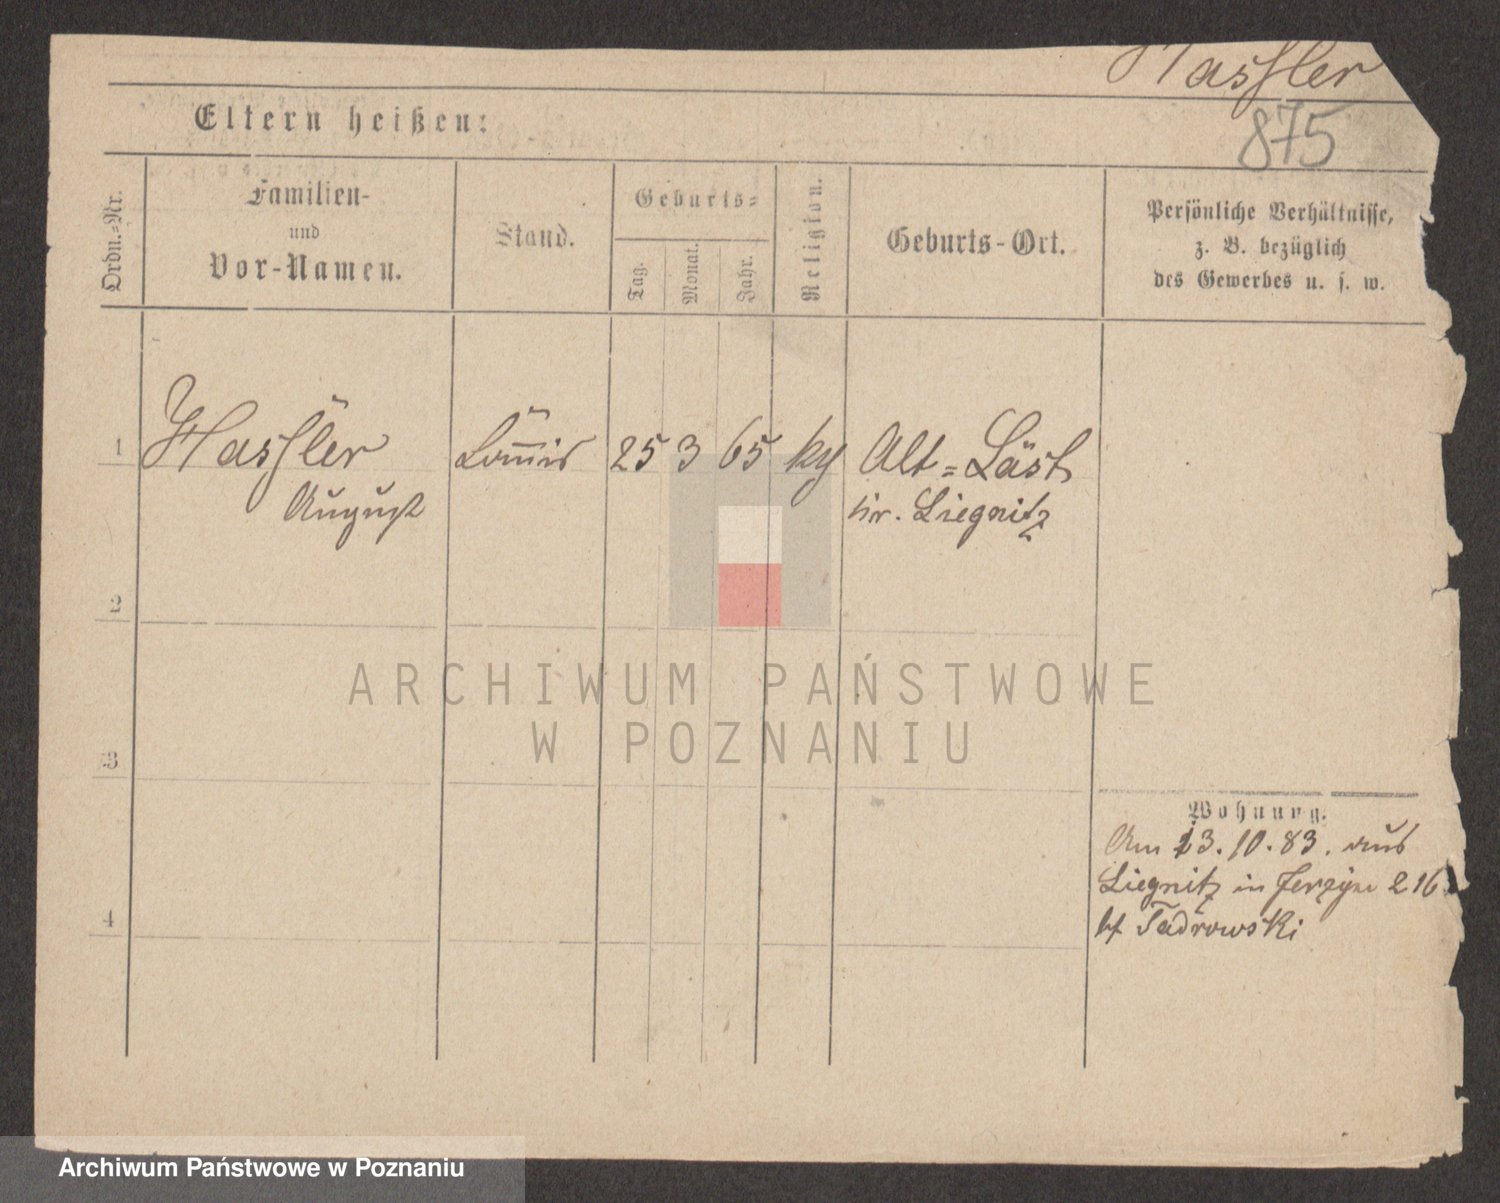 Hassler
875
Eltern heißen:
Ordn.-Nr.
Familien-
und
Vor-Namen.
Stand.
Geburts-
Tag.
Monat.
Jahr.
Religion.
Geburts-Ort.
Persönliche Verhältnisse,
z. B. bezüglich
des Gewerbes u. s. w.
1 Hassler 25 3 65 Alt-Läst
August Liegnitz
2
ARCHIWUM PAŃSTWOWE
W POZNANIU
3
Wohnung.
Am 13.10.83. aus
Liegnitz in 216
Tadrowski
4
Archiwum Państwowe w Poznaniu